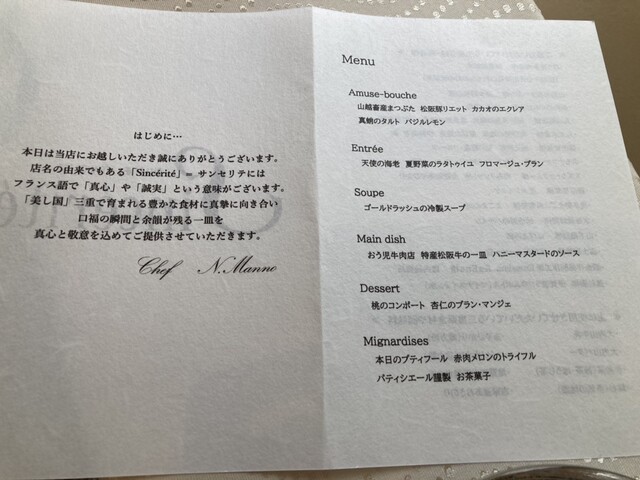 はじめに…
本日は当店にお越しいただき誠にありがとうございます。
店名の由来でもある「Sincérité」= サンセリテには
フランス語で「真心」や「誠実」という意味がございます。
「美し国」三重で育まれる豊かな食材に真摯に向き合い
口福の瞬間と余韻が残る一皿を
真心と敬意を込めてご提供させていただきます。
Chef N.Manno
Menu
Amuse-bouche
山越畜産まつぶた 松阪豚リエット カカオのエクレア
真鯛のタルト バジルレモン
Entrée
天使の海老 夏野菜のラタトゥイユ フロマージュ・ブラン
Soupe
ゴールドラッシュの冷製スープ
Main dish
おう児牛肉店 特産松阪牛の一皿 ハニーマスタードのソース
Dessert
桃のコンポート 杏仁のブラン・マンジェ
Mignardises
本日のプティフール 赤肉メロンのトライフル
パティシエール謹製 お茶菓子